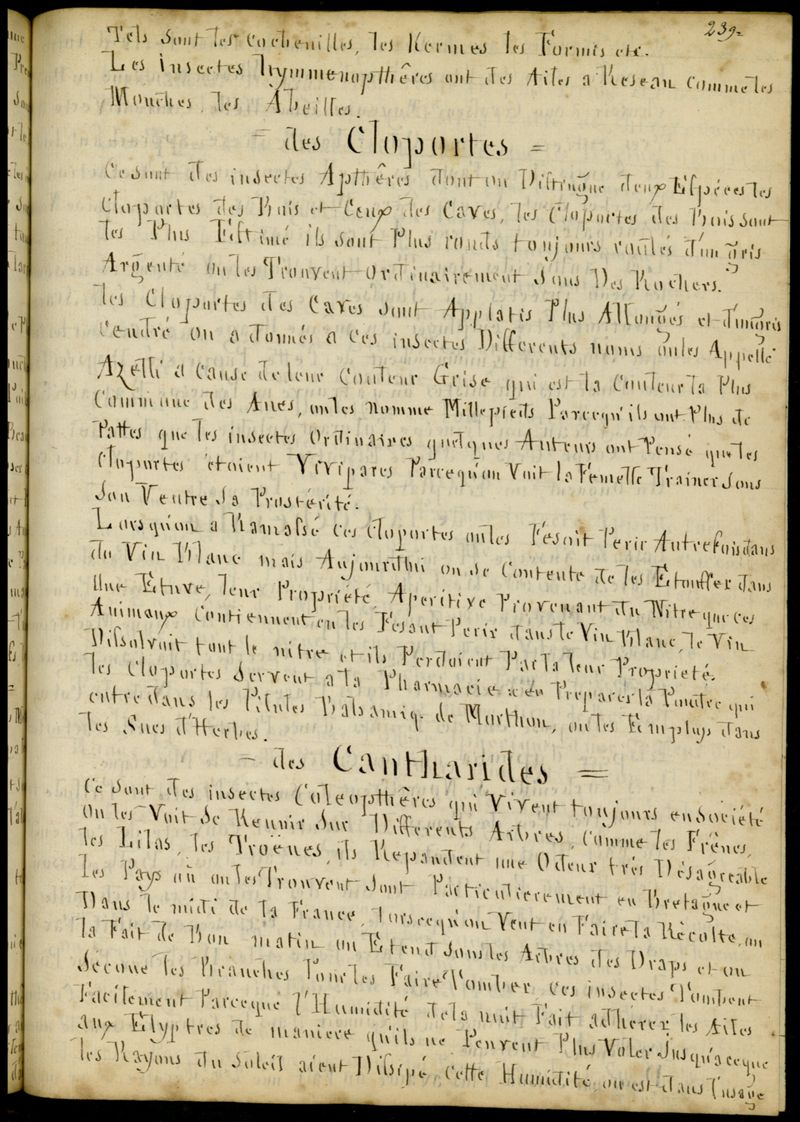 239=
Tels sont les Cochenilles, les Kermes les Formis etc.
Les insectes hymmenopthêres ont des Ailes a Reseau comme les
Mouches, les Abeilles.
= des Cloportes =
Ce sont des insectes Apthêres dont on Distingue deux Especes les
Cloportes des Bois et Ceux des Caves, les Cloportes des Bois sont
les Plus Estimé ils sont Plus ronds toujours roulés d'un gris
Argenté on les Trouvent Ordinairement Sous Des Rochers.
les Cloportes des Caves sont Applatis Plus Allongés et d'un gris
Cendré on a donnés a ces insectes Differents noms on les Appelle
Azelli a Cause de leur Couleur Grise qui est la Couleur la Plus
Commune des Anes, on les nomme Millepieds Parcequ'ils ont Plus de
Pattes que les insectes Ordinaires quelques Auteurs ont Pensé que les
Cloportes étoient Vivipares Parcequ'on Voit la Femelle Trainer Sous
Son Ventre Sa Prostérité.
Lorsqu'on a Ramassé ces Cloportes on les Fesoit Perir Autrefois dans
du Vin Blanc mais Aujourdhui on se Contente de les Etouffer dans
Une Etuve, leur Propriété Aperitive Provenant du Nitre que ces
Animaux Contiennent en les Fesant Perir dans le Vin Blanc, le Vin
Dissolvoit tout le nitre et ils Perdoient Par la leur Propriété.
les Cloportes Servent a la Pharmacie a en Preparer la Poudre qui
entre dans les Pilules Balsamiq. de Morthon, on les Employs dans
les Sucs d'Herbes.
= des Canthiarides =
Ce sont des insectes Coleopthêres qui Vivent toujours en Société
On les Voit Se Reunir Sur Differents Arbres, Comme les Frênes,
les Lilas, les Troënes, ils Repandent une Odeur très Désagreable
les Pays où on les Trouvent Sont Particulierement en Bretagne et
Dans le midi de la France, lorscequ'on Veut en Faire la Récolte, on
la Fait de Bon matin on Etend Sous les Arbres des Draps et on
Secoue les Branches Pour les Faire Tomber ces insectes Tombent
Facilement Parceque l'Humidité de la nuit Fait adherer les Ailes
aux Elyptres de maniere qu'ils ne Peuvent Plus Voler Jusqu'aceque
les Rayons du Soleil aient Dissipé cette Humidité on est dans l'usage